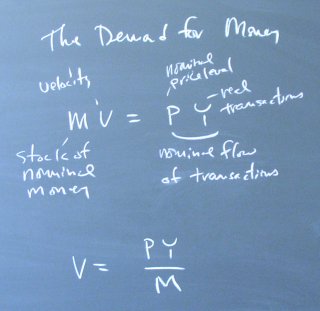 The Demand for Money
nominal
velocity price level
real
transactions
m V = P Y
stock of nominal flow
nominal of transactions
money
V = PY
M